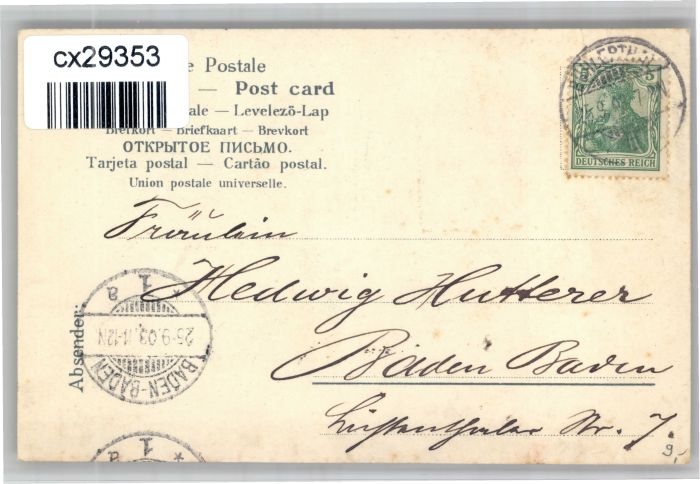 cx29353
e Postale
— Post card
ale — Levelezõ-Lap
Brefkort — Briefkaart — Brevkort
ОТКРЫТОЕ ПИСЬМО.
Tarjeta postal — Cartão postal.
Union postale universelle.
5 5
DEUTSCHES REICH
Fräulein
Hedwig Hutterer
Baden Baden
Str. 7
Absender:
BADEN-BADEN
1
a
1
a
9,